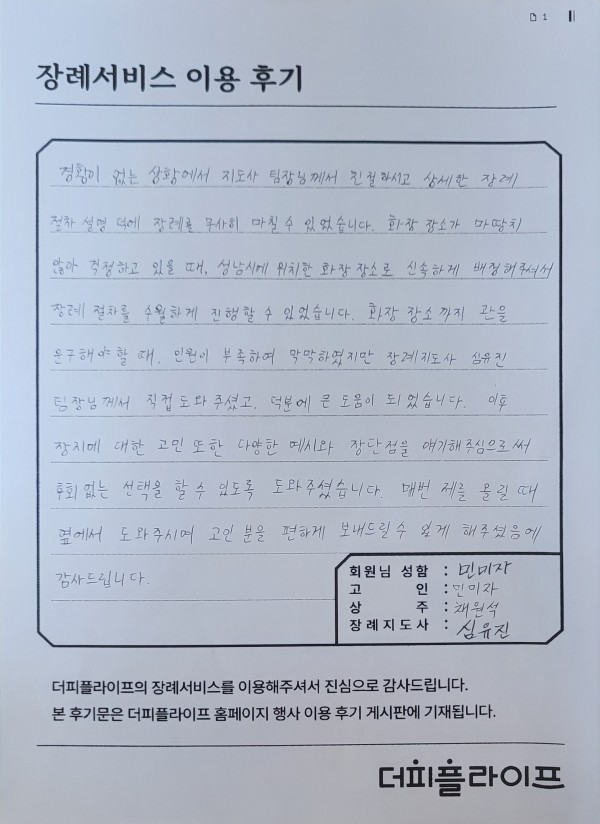 1
장례서비스 이용 후기
경황이 없는 상황에서 지도사 팀장님께서 친절하시고 상세한 장례
절차 설명 덕에 장례를 무사히 마칠 수 있었습니다. 화장 장소가 마땅치
않아 걱정하고 있을 때, 성남시에 위치한 화장 장소로 신속하게 배정해주셔서
장례 절차를 수월하게 진행할 수 있었습니다. 화장 장소까지 관을
운구해야 할 때, 인원이 부족하여 막막하였지만 장례지도사 심유진
팀장님께서 직접 도와주셨고, 덕분에 큰 도움이 되었습니다. 이후
장지에 대한 고민 또한 다양한 예시와 장단점을 얘기해주심으로써
후회없는 선택을 할 수 있도록 도와주셨습니다. 매번 제를 올릴 때
옆에서 도와주시며 고인 분을 편하게 보내드릴 수 있게 해주셨음에
감사드립니다.
회원님 성함 : 민미자
고 인 : 민미자
상 주 : 채원석
장례지도사 : 심유진
더피플라이프의 장례서비스를 이용해주셔서 진심으로 감사드립니다.
본 후기문은 더피플라이프 홈페이지 행사 이용 후기 게시판에 기재됩니다.
더피플라이프